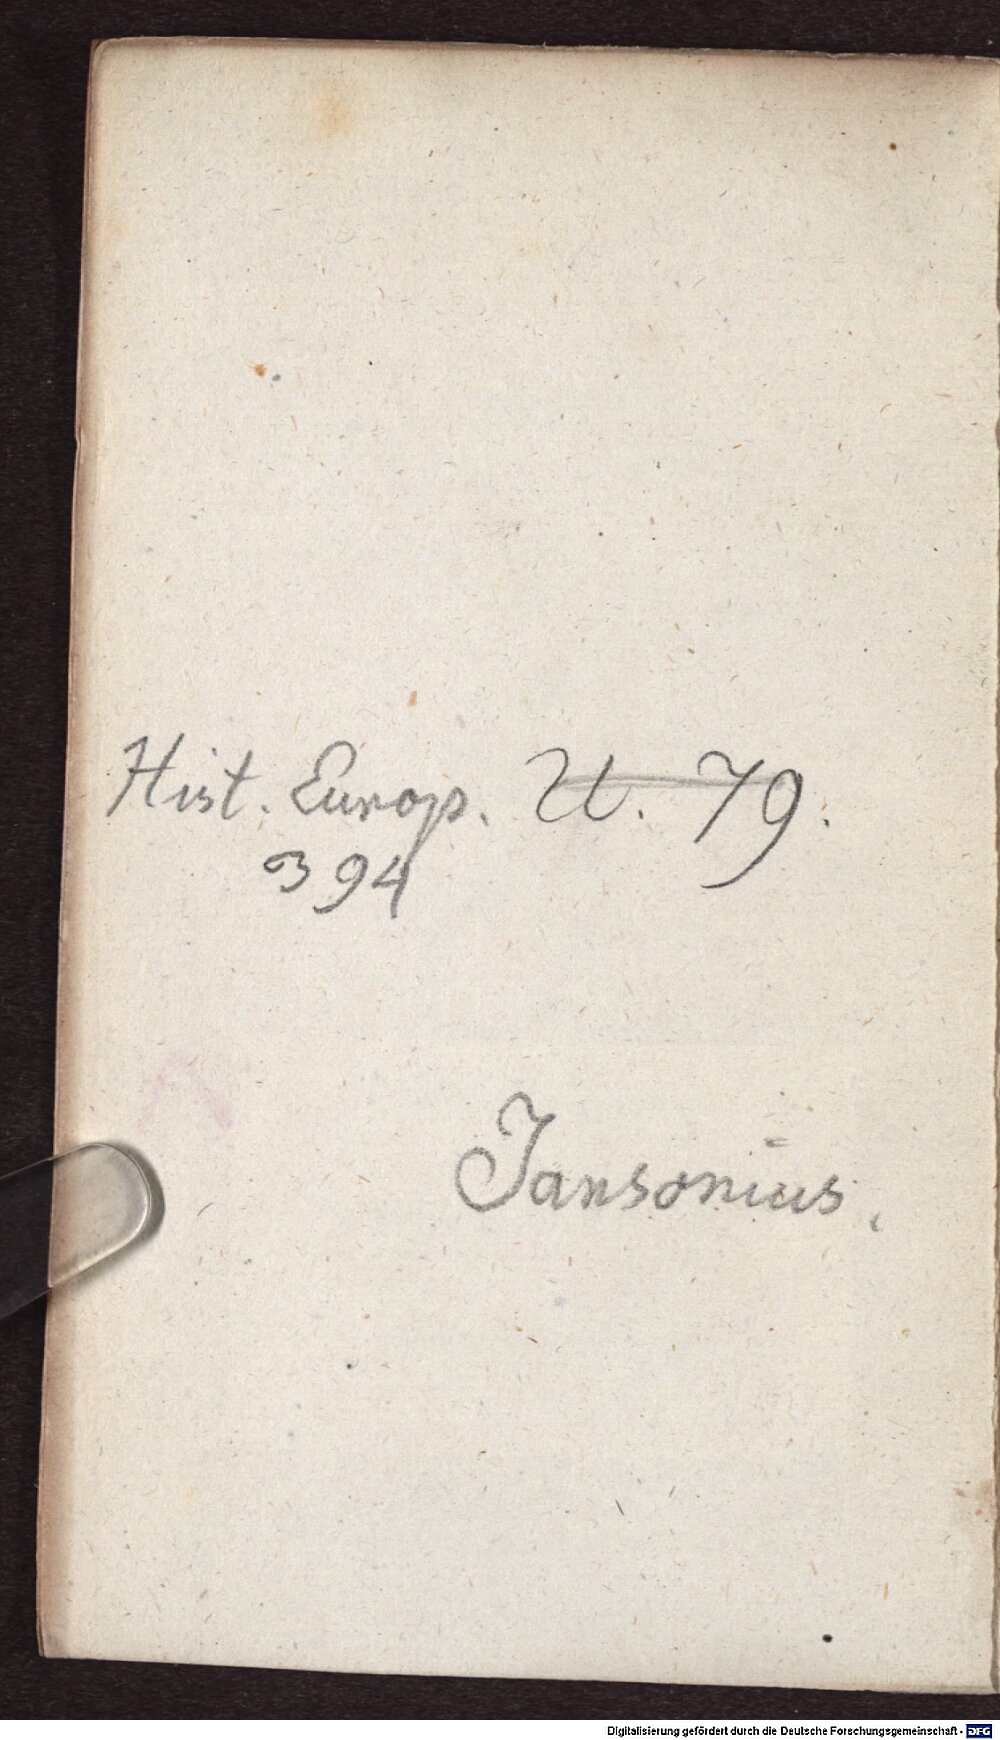 Hist. Europ. U. 79.
394
Jansonius.
Digitalisierung gefördert durch die Deutsche Forschungsgemeinschaft - DFG